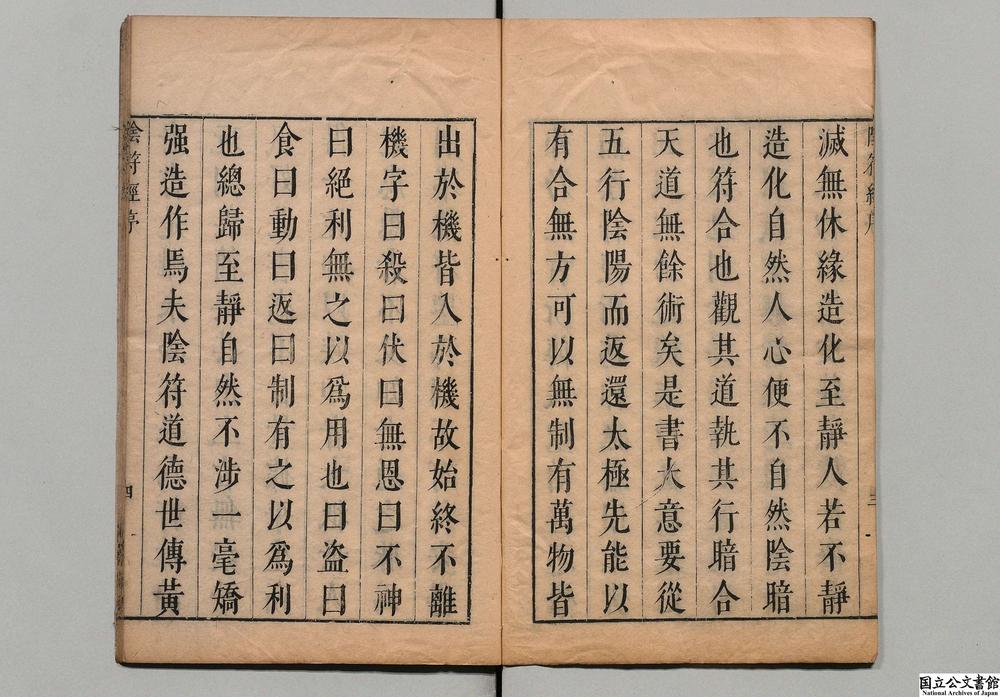 陰符經序
三
滅無休緣造化至靜人若不靜
造化自然人心便不自然陰暗
也符合也觀其道執其行暗合
天道無餘術矣是書大意要從
五行陰陽而返還太極先能以
有合無方可以無制有萬物皆
出於機皆入於機故始終不離
機字曰殺曰伏曰無恩曰不神
曰絕利無之以爲用也曰盜曰
食曰動曰返曰制有之以爲利
也總歸至靜自然不涉一毫矯
强造作焉夫陰符道德世傳黃
陰符經序
四
国立公文書館
National Archives of Japan